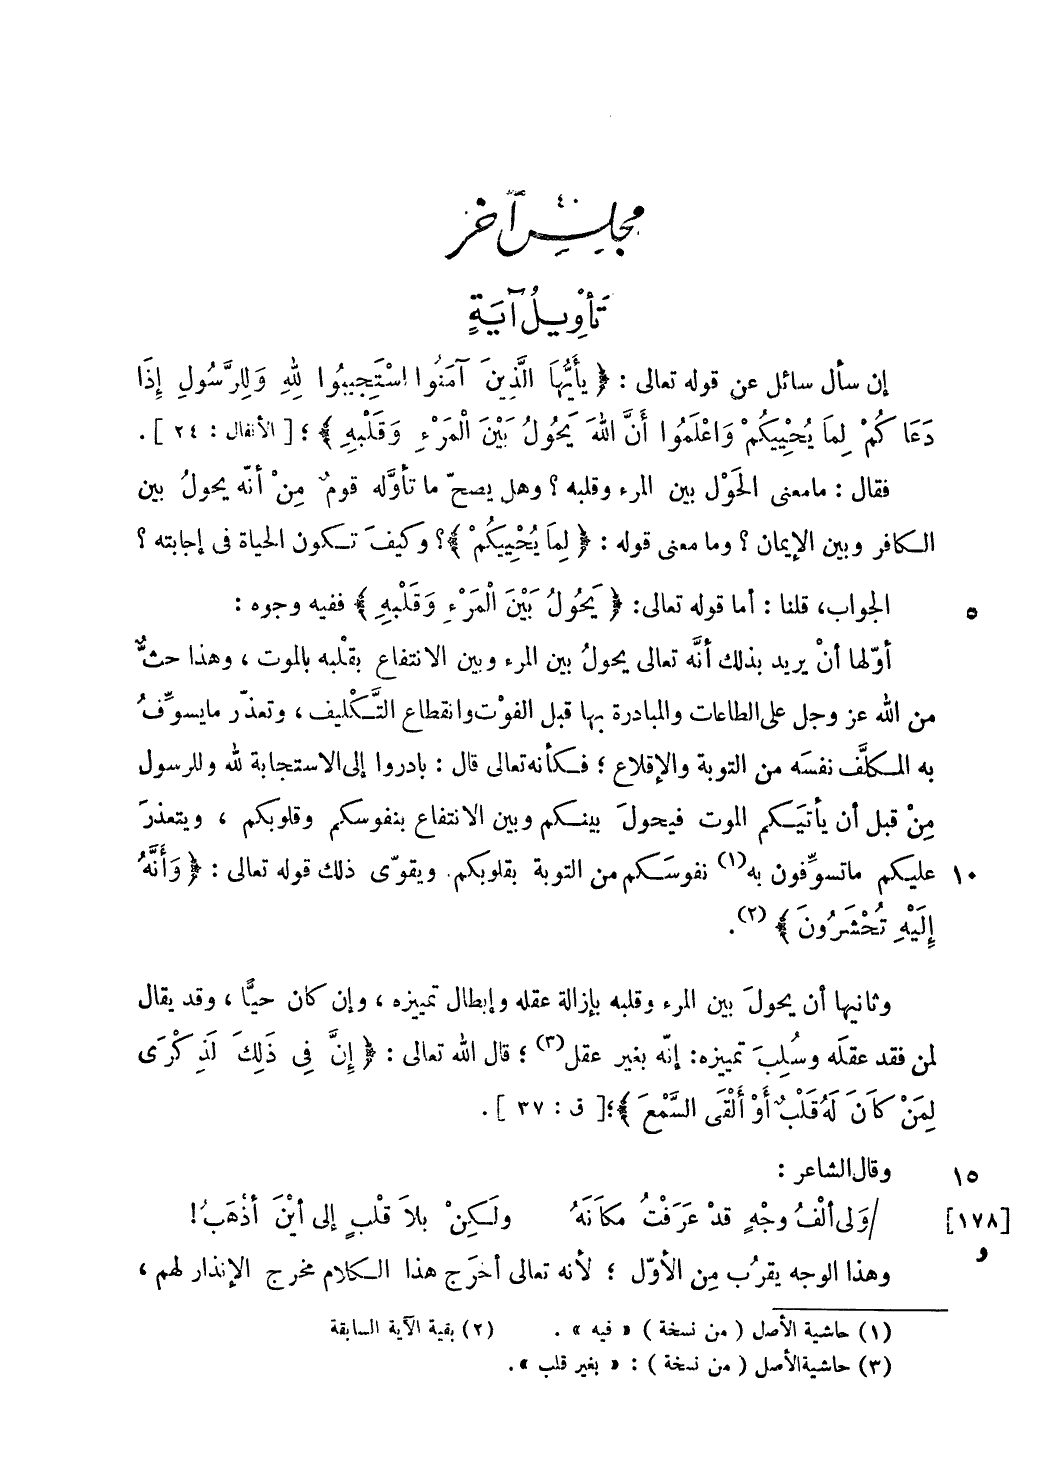 ٤٠
مجلس آخر
تأْوِيلُ آيَةٍ
إن سأل سائل عن قوله تعالى : ﴿ يأَيُّهَا الَّذِينَ آمَنُوا اسْتَجِيبُوا لِلهِ وَلِلرَّسُولِ إِذَا
دَعَاكُمْ لِمَا يُحْيِيكُمْ وَاعْلَمُوا أَنَّ اللهَ يَحُولُ بَيْنَ الْمَرْءِ وَقَلْبِهِ ﴾ ؛ [ الأنفال : ٢٤ ] .
فقال : مامعنى الحَوْل بين المرء وقلبه ؟ وهل يصحّ ما تأوّله قومٌ مِنْ أنّه يحولُ بين
الكافر وبين الإيمان ؟ وما معنى قوله : ﴿ لِمَا يُحْيِيكُمْ ﴾؟ وكيفَ تكون الحياة فى إجابته ؟
٥ الجواب، قلنا : أما قوله تعالى: ﴿ يَحُولُ بَيْنَ الْمَرْءِ وَقَلْبِهِ ﴾ ففيه وجوه :
أوّلها أنْ يريد بذلك أنَّه تعالى يحولُ بين المرء وبين الانتفاع بقلْبه بالموت ، وهذا حثٌّ
من الله عز وجل على الطاعات والمبادرة بها قبل الفوْت وانقطاع التَّكْليف ، وتعذّر مايسوِّفُ
به المكلَّف نفسَه من التوبة والإقلاع ؛ فكأنه تعالى قال : بادروا إلى الاستجابة لله وللرسول
مِنْ قبل أن يأتيَكم الموت فيحولَ بينكم وبين الانتفاع بنفوسكم وقلوبكم ، ويتعذرَ
١٠ عليكم ماتسوِّفون به(١) نفوسَكم من التوبة بقلوبكم. ويقوّى ذلك قوله تعالى : ﴿ وَأَنَّهُ
إِلَيْهِ تُحْشَرُونَ ﴾ (٢).
وثانيها أن يحولَ بين المرء وقلبه بإزالة عقله وإبطال تمييزه ، وإن كان حيًّا ، وقد يقال
لمن فقد عقلَه وسُلِبَ تمييزه: إنّه بغير عقل(٣) ؛ قال الله تعالى : ﴿ إِنَّ فِي ذَلِكَ لَذِكْرَى
لِمَنْ كَانَ لَهُ قَلْبٌ أَوْ أَلْقَى السَّمْعَ ﴾؛[ ق : ٣٧ ] .
١٥ وقال الشاعر :
[١٧٨ /وَلى ألْفُ وجْهٍ قدْ عَرَفْتُ مكَانَهُ ولَكِنْ بلاَ قلْبٍ إلى أيْنَ أذْهَبُ!
و] وهذا الوجه يقرُب مِن الأوّل ؛ لأنه تعالى أخرَج هذا الكلام مخرج الإنذار لهم ،
(١) حاشية الأصل ( من نسخة ) « فيه » . (٢) بقية الآية السابقة
(٣) حاشية الأصل ( من نسخة ) : « بغير قلب ».